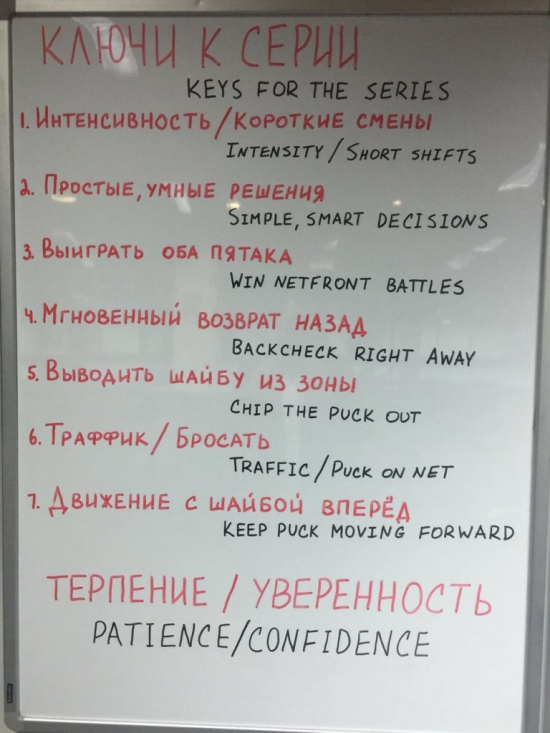 КЛЮЧИ К СЕРИИ
KEYS FOR THE SERIES
1. ИНТЕНСИВНОСТЬ/КОРОТКИЕ СМЕНЫ
INTENSITY/SHORT SHIFTS
2. ПРОСТЫЕ, УМНЫЕ РЕШЕНИЯ
SIMPLE, SMART DECISIONS
3. ВЫИГРАТЬ ОБА ПЯТАКА
WIN NETFRONT BATTLES
4. МГНОВЕННЫЙ ВОЗВРАТ НАЗАД
BACKCHECK RIGHT AWAY
5. ВЫВОДИТЬ ШАЙБУ ИЗ ЗОНЫ
CHIP THE PUCK OUT
6. ТРАФФИК/БРОСАТЬ
TRAFFIC/PUCK ON NET
7. ДВИЖЕНИЕ С ШАЙБОЙ ВПЕРЁД
KEEP PUCK MOVING FORWARD
ТЕРПЕНИЕ / УВЕРЕННОСТЬ
PATIENCE/CONFIDENCE